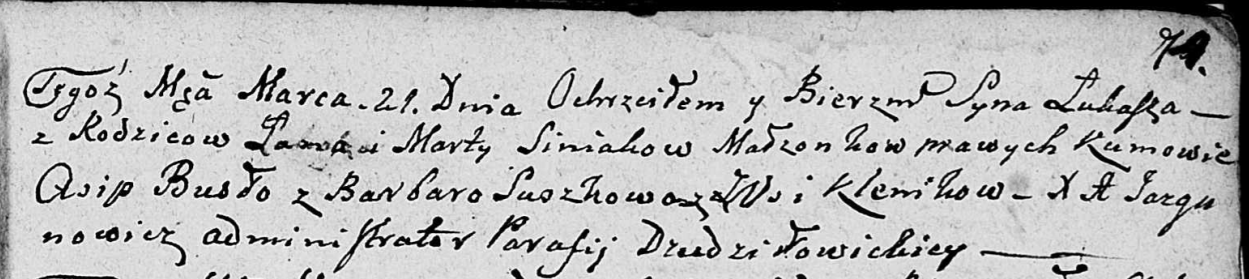 74.
Tegoż Mca Marca. 21. Dnia Ochrzciłem y Bierzmł Syna Łukasza —
z Rodzicow i Marty Siniakow Małzonkow prawych Kumowie
Asip Busło z Barbaro Suszkowo z Wsi Klenikow – X A Jazgu
nowicz administrator Parafij Dzudziłowickiey —